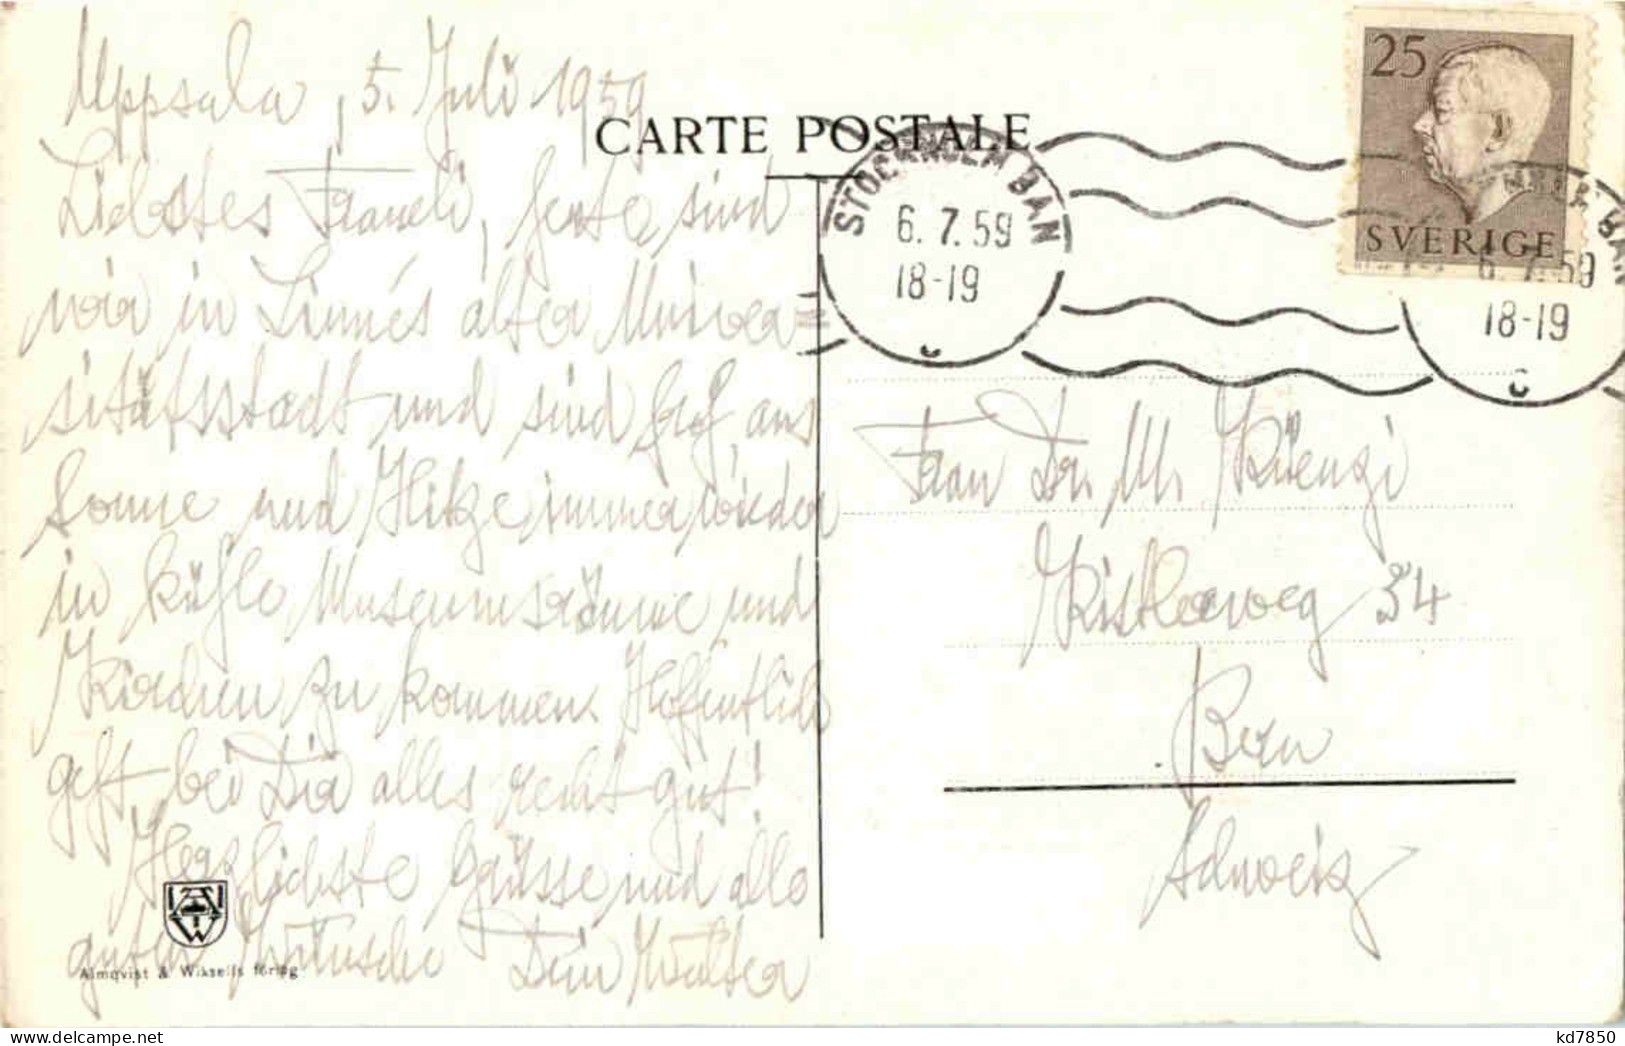 Uppsala, 5. Juli 1959
CARTE POSTALE
Liebstes Fraueli, heute sind
wir in Linnés alter Univer
sitätsstadt und sind froh, aus
Sonne und Hitze immer wieder
in kühle Museumsräume und
Kirchen zu kommen. Hoffentlich
geht bei Dir alles recht gut!
Herzlichste Grüsse und alle
guten Wünsche Dein Walter
Almqvist & Wiksells förlag
STOCKHOLM BAN
6.7.59
18-19
25
SVERIGE
6.7.59
18-19
Frau Dr. M. Küenzi
Kistlerweg 34
Bern
Schweiz
kd7850